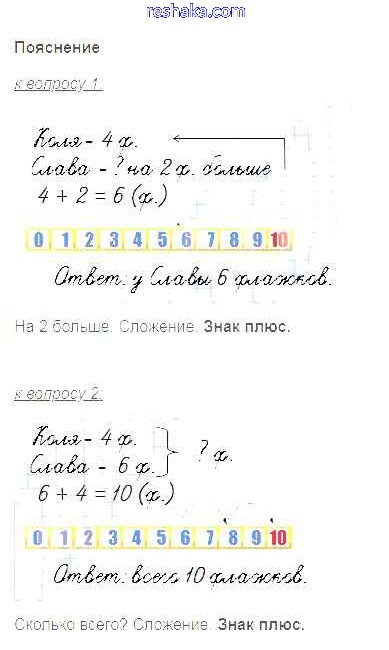 reshaka.com
Пояснение
к вопросу 1.
Коля - 4 ф.
Слава - ? на 2 ф. больше
4 + 2 = 6 (ф.)
0 1 2 3 4 5 6 7 8 9 10
Ответ: у Славы 6 флажков.
На 2 больше. Сложение. Знак плюс.
к вопросу 2.
Коля - 4 ф.
Слава - 6 ф.
? ф.
6 + 4 = 10 (ф.)
0 1 2 3 4 5 6 7 8 9 10
Ответ: всего 10 флажков.
Сколько всего? Сложение. Знак плюс.